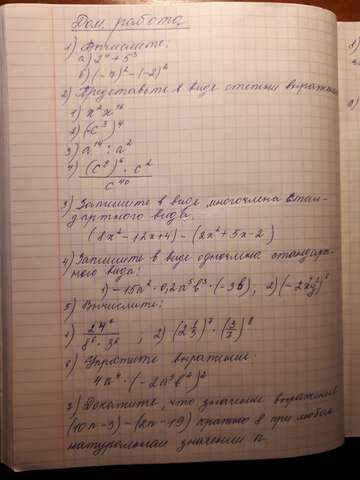 Дом. работа
1) Вычислите:
а) 2⁴ + 5³
б) (-7)² - (-2)²
2) Представьте в виде степени выражение
1) x² x¹⁶
2) (-c³)⁴
3) a¹⁴ : a²
4) (c⁸)⁶ · c² / c⁴⁰
3) Запишите в виде многочлена стан-
дартного вида.
(8x² - 12x + 4) - (2x² + 5x - 2)
4) Запишите в виде одночлена стандарт-
ного вида:
1) -15a² · 0,2a⁵b³ · (-3b), 2) (-2x³y)²
5) Вычислите:
24⁶ / 8⁶ · 3⁶, 2) (2 1/3)⁷ · (3/7)⁸
6) Упростите выражение:
4a⁴ · (-2a³b²)²
7) Докажите, что значение выражения
(10n - 3) - (2n - 19) кратно 8 при любом
натуральном значении n.